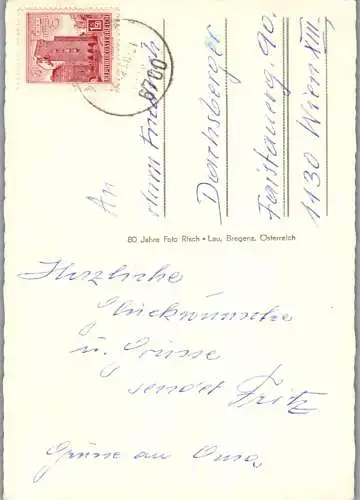 REPUBLIK ÖSTERREICH
6700
An
Friedrich
Dachsberger
90.
1130 Wien XIII.
80 Jahre Foto Risch • Lau, Bregenz, Österreich
Herzliche
Glückwünsche
u. Grüsse
sendet Fritz
Grüsse an Oma